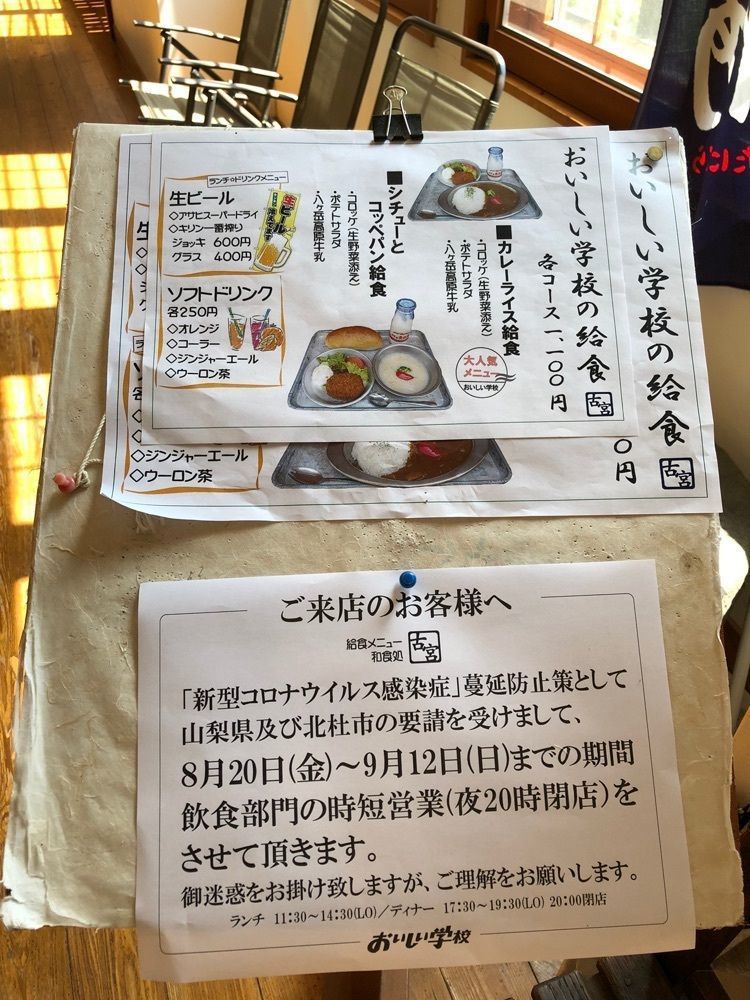 おいしい学校の給食
各コース一、一〇〇円
古宮
■カレーライス給食
・コロッケ(生野菜添え)
・ポテトサラダ
・八ヶ岳高原牛乳
大人気
メニュー
おいしい学校
■シチューと
コッペパン給食
・コロッケ(生野菜添え)
・ポテトサラダ
・八ヶ岳高原牛乳
ランチ・ドリンクメニュー
生ビール
◇アサヒスーパードライ
◇キリン一番搾り
ジョッキ 600円
グラス 400円
生ビール
ソフトドリンク
各250円
◇オレンジ
◇コーラー
◇ジンジャーエール
◇ウーロン茶
おいしい学校の給食
〇円
古宮
◇ジンジャーエール
◇ウーロン茶
ご来店のお客様へ
給食メニュー
和食処
古宮
「新型コロナウイルス感染症」蔓延防止策として
山梨県及び北杜市の要請を受けまして、
8月20日(金)～9月12日(日)までの期間
飲食部門の時短営業(夜20時閉店)を
させて頂きます。
御迷惑をお掛け致しますが、ご理解をお願いします。
ランチ 11:30～14:30(LO)／ディナー 17:30～19:30(LO) 20:00閉店
おいしい学校